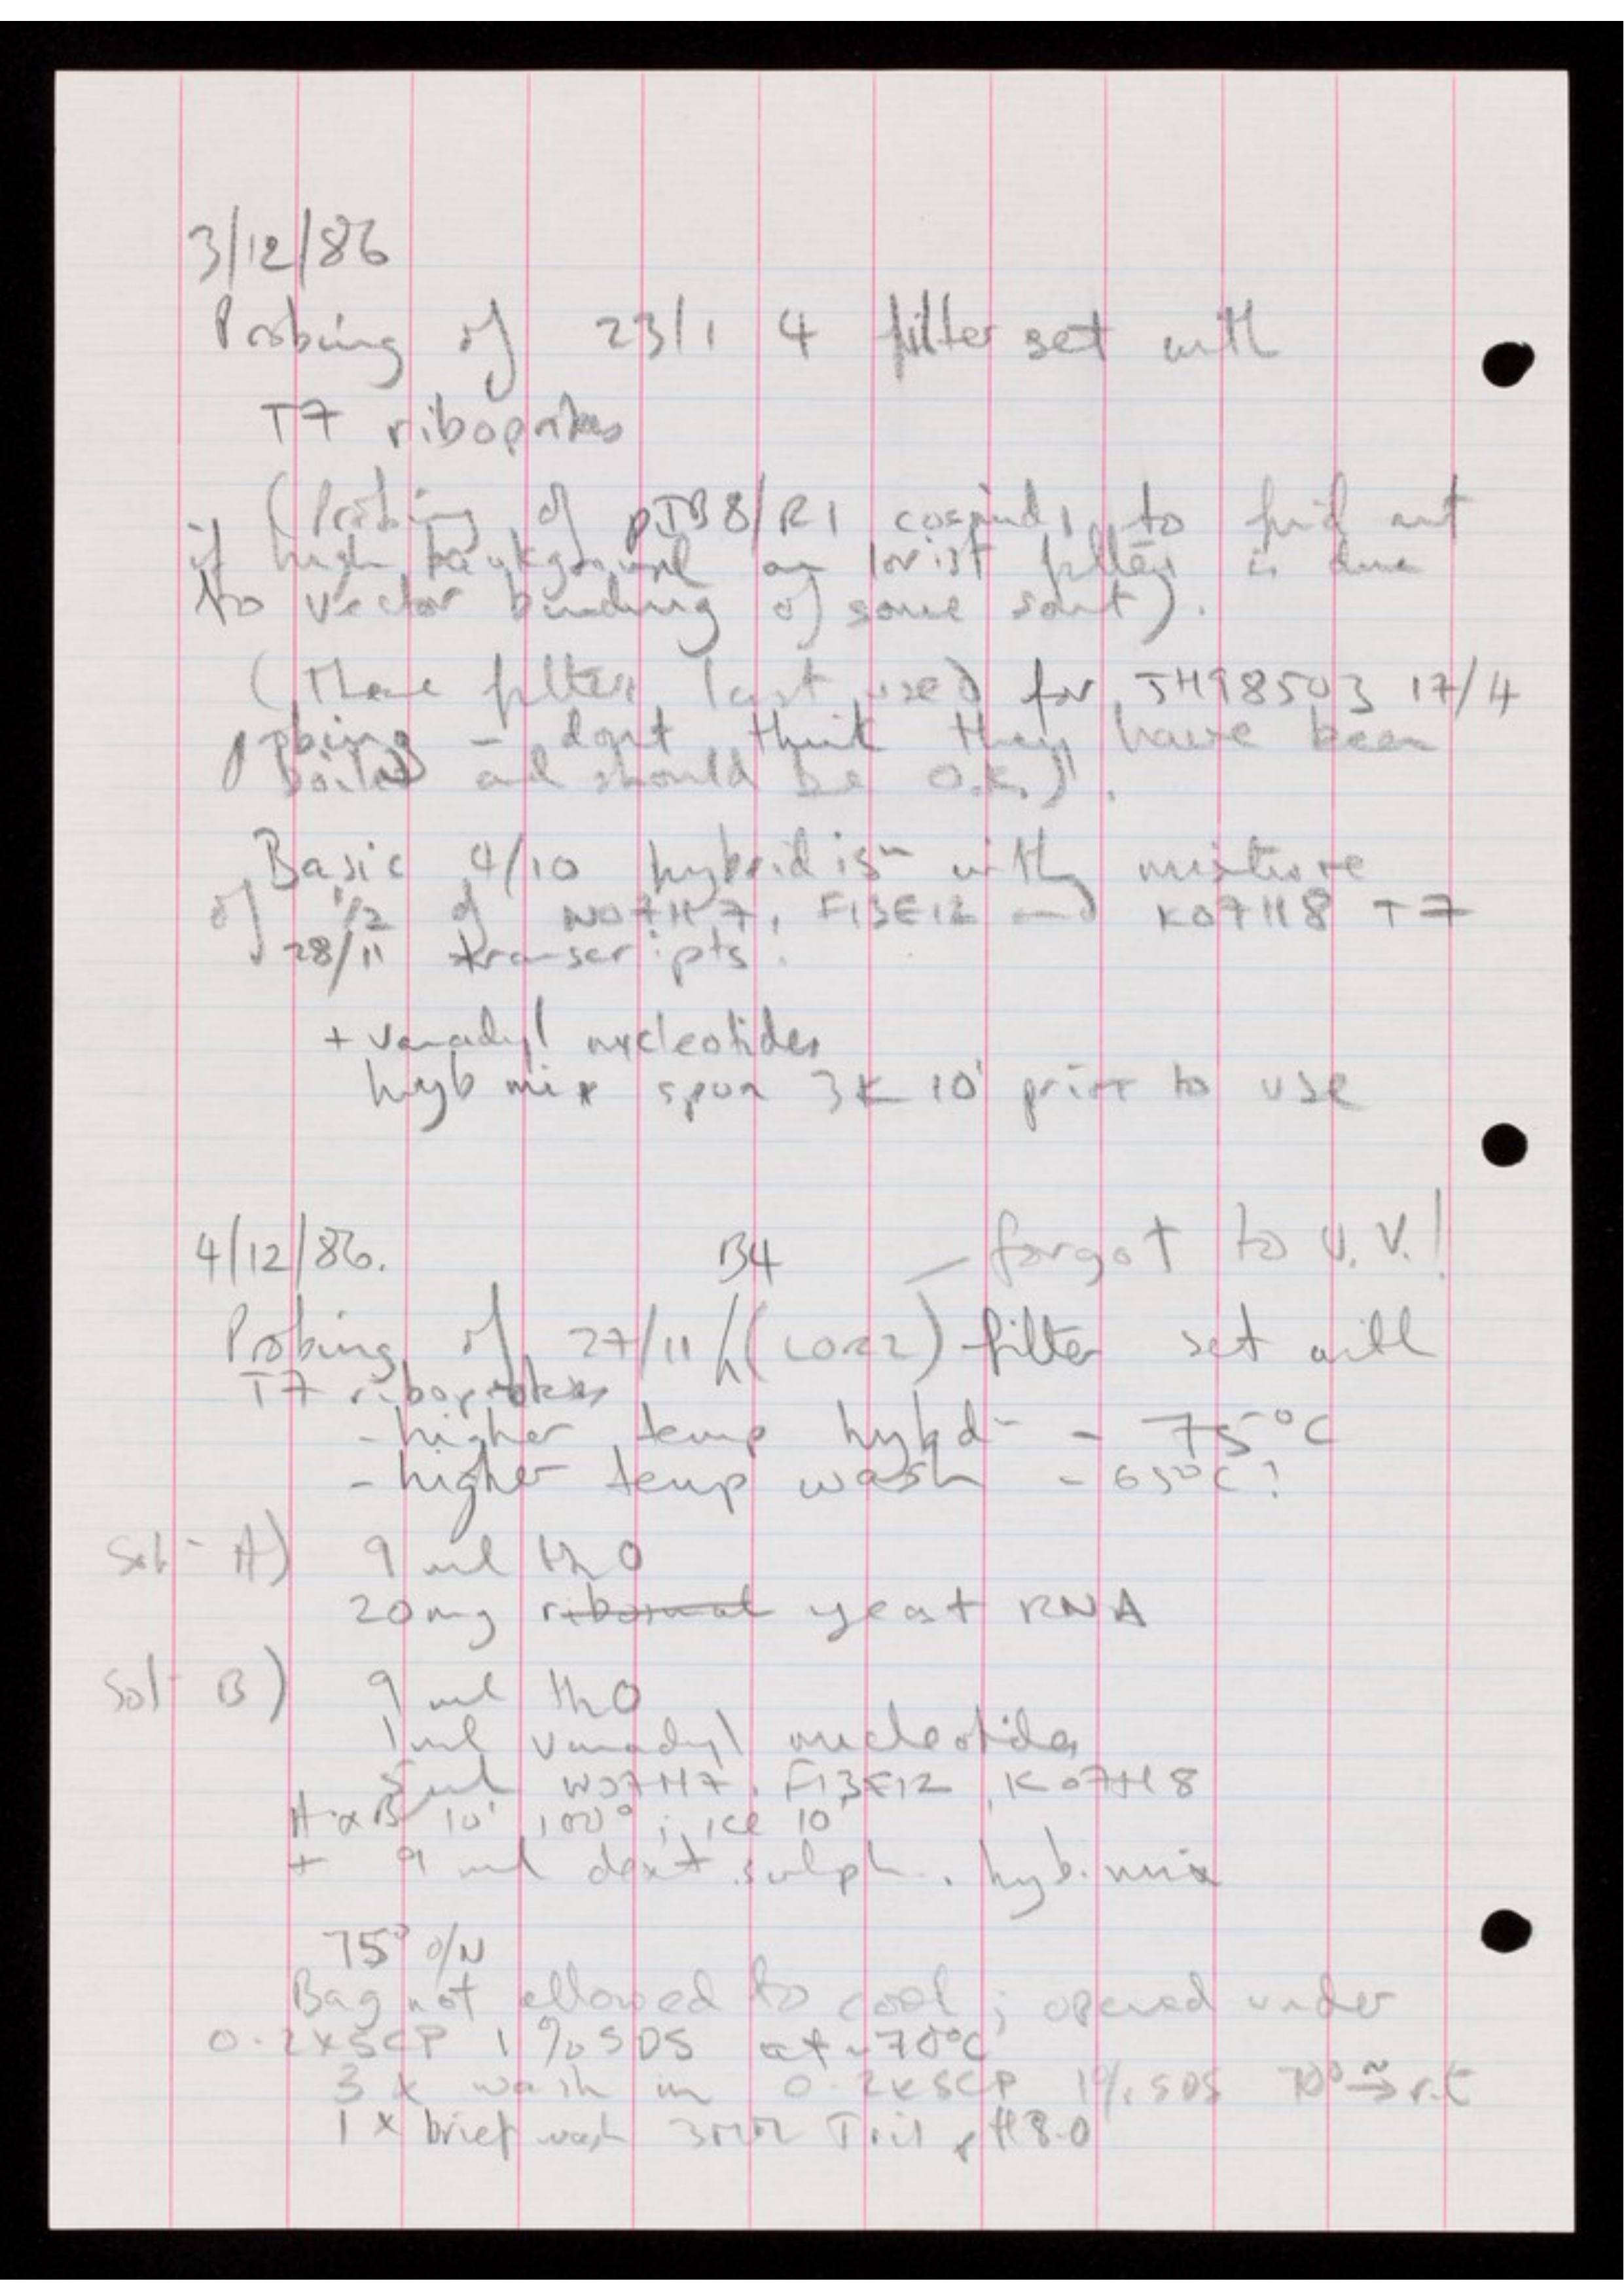 3/12/86
Probing of 23/1 4 filter set with
T7 riboprobes
(Probing of pJB8/R1 cosmids to find out
if high background on lorist filters is due
to vector binding of some sort).
(These filters last used for JH98503 17/4
probing - dont think they have been
boiled and should be O.K.).
Basic 4/10 hybridisn with mixture
of 1/2 of W07H7, F13E12 and K07H8 T7
28/11 transcripts.
+ vanadyl nucleotides
hyb mix spun 3K 10' prior to use
4/12/86. B4 - forgot to U.V.!
Probing of 27/11 (LOR2) filter set with
T7 riboprobes
- higher temp hybdn - 75°C
- higher temp wash - 65°C?
Soln A) 9 ml H2O
20mg ribosomal yeast RNA
Soln B) 9 ml H2O
1ml vanadyl nucleotides
5ul W07H7, F13E12, K07H8
A & B 10' 100°; ice 10'
+ 9 ml dext. sulph. hyb. mix
75° o/N
Bag not allowed to cool; opened under
0.2xSCP 1% SDS at ~70°C
3 x wash in 0.2xSCP 1% SDS 70° → r.t
1 x brief wash 3mM Tris pH8.0